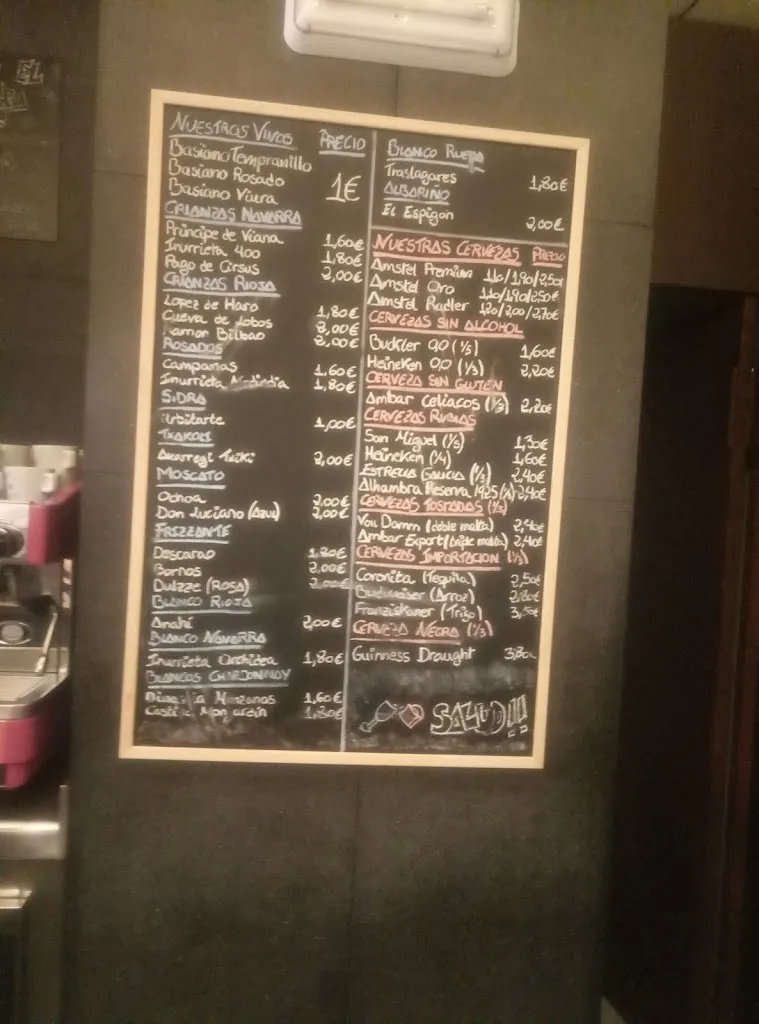 NUESTROS VINOS PRECIO
Basiano Tempranillo
Basiano Rosado 1€
Basiano Viura
CRIANZAS NAVARRA
Principe de Viana 1,60€
Inurrieta 400 1,80€
Pago de Cirsus 2,00€
CRIANZAS RIOJA
Lopez de Haro 1,80€
Cueva de Lobos 2,00€
Ramon Bilbao 2,00€
ROSADOS
Campanas 1,60€
Inurrieta 1,80€
SIDRA
Urbitarte 1,00€
TXAKOLI
Txiki 2,00€
MOSCATO
Ochoa 2,00€
Don Luciano (Azul) 2,00€
FRIZZANTE
Descarao 1,80€
Bornos 2,00€
Dulzze (ROSA) 2,00€
BLANCO RIOJA
Anahí 2,00€
BLANCO NAVARRA
Inurrieta Orchidea 1,80€
BLANCOS CHARDONNAY
Manzanos 1,60€
Castillo Monjardin 1,80€
BLANCO RUEDA
Traslagares 1,80€
ALBARIÑO
El Espigon 2,00€
NUESTRAS CERVEZAS PRECIO
Amstel Premium 1,10/1,90/2,50€
Amstel Oro 1,10/1,90/2,50€
Amstel Radler 1,20/2,00/2,70€
CERVEZAS SIN ALCOHOL
Buckler 0,0 (1/3) 1,60€
Heineken 0,0 (1/3) 2,20€
CERVEZA SIN GLUTEN
Ambar Celiacos (1/3) 2,20€
CERVEZAS RUBIAS
San Miguel (1/5) 1,30€
Heineken (1/4) 1,60€
ESTRELLA GALICIA (1/3) 2,40€
Alhambra Reserva 1925 (1/3) 2,40€
CERVEZAS TOSTADAS (1/3)
Voll Damm (doble malta) 2,40€
Ambar Export (triple malta) 2,40€
CERVEZAS IMPORTACION (1/3)
Coronita (Tequila) 2,50€
Budweiser (Arroz) 2,80€
Franziskaner (Trigo) 3,50€
CERVEZA NEGRA (1/3)
Guinness Draught 3,80€
SALUD!!!